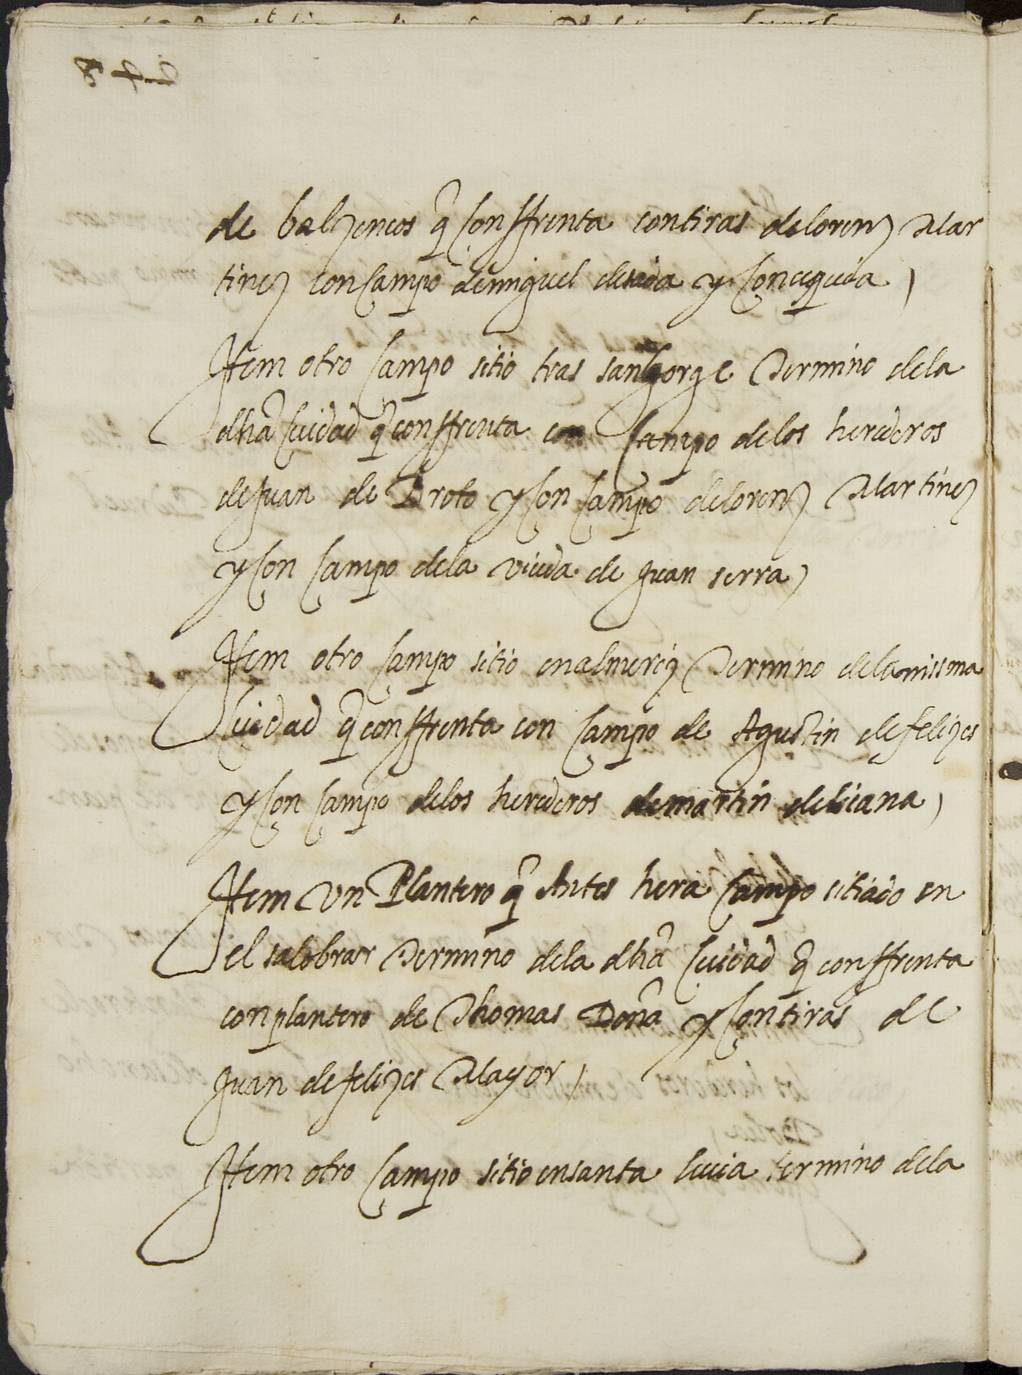 de balzencos q̃ Conffrenta con tiras de lorenz Mar
tinez con Campo de miguel de y Con cequia
Item otro Campo sitio tras san Jorge Termino de la
dhã Ciudad q̃ confrenta con Campo de los herederos
de Juan de Broto y Con Campo de lorenz Martinez
y Con Campo de la viuda de Juan serra
Item otro Campo sitio en almeriz Termino de la missma
Ciudad q̃ confrenta con Campo de Agustin de felizes
y Con Campo de los herederos de martin de biana
Item Un Plantero q̃ Antes hera Campo sitiado en
el salobrar Termino de la dhã Ciudad q̃ confrenta
con plantero de Thomas Doña y Con tiras de
Juan de felizes Mayor
Item otro Campo sitio en santa lucia termino de la